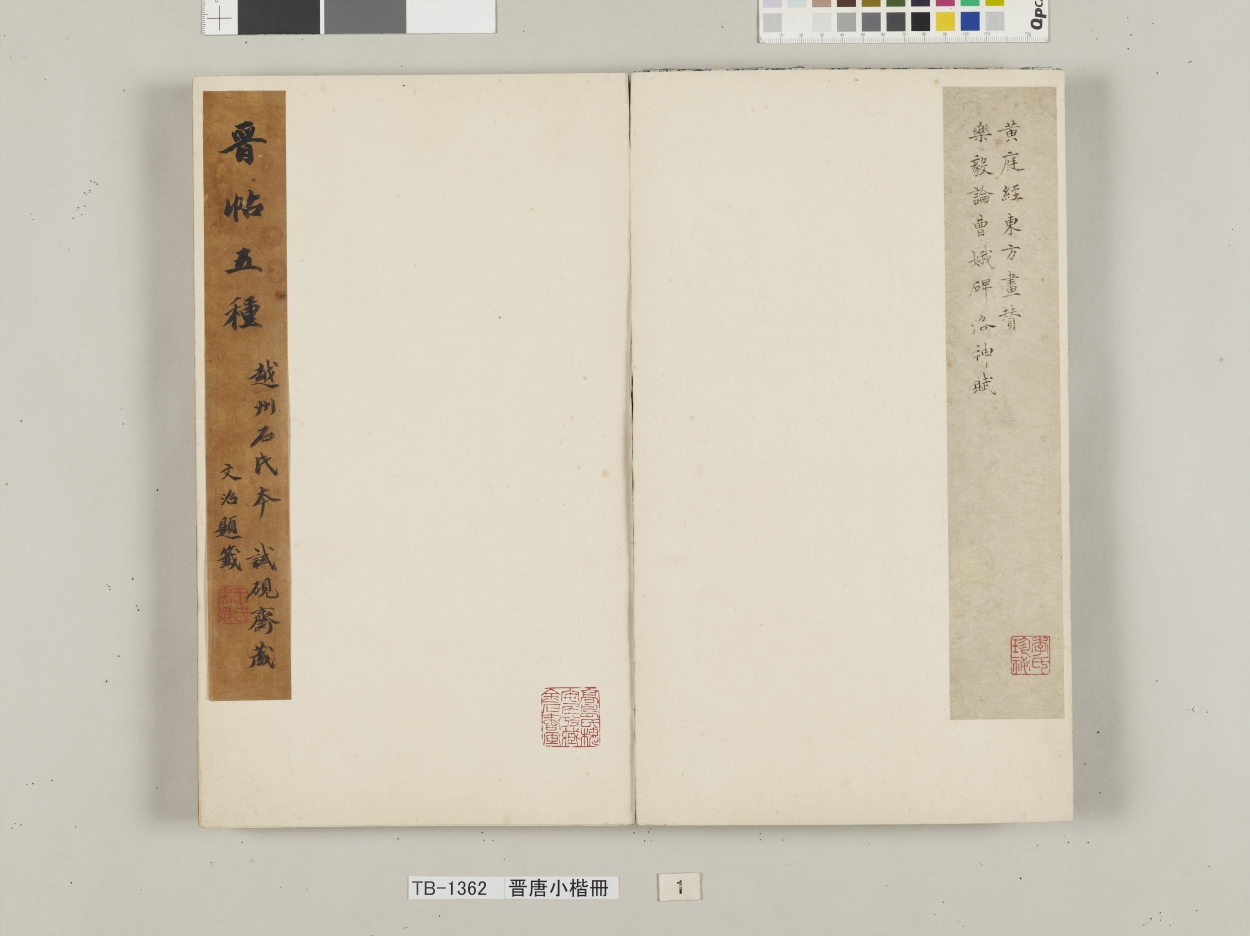 黄庭經東方畫贊
樂毅論曹娥碑洛神賦
李氏珍秘
晋帖五種
越州石氏本 試硯齋藏
文治題籤
TB-1362 晋唐小楷冊
1